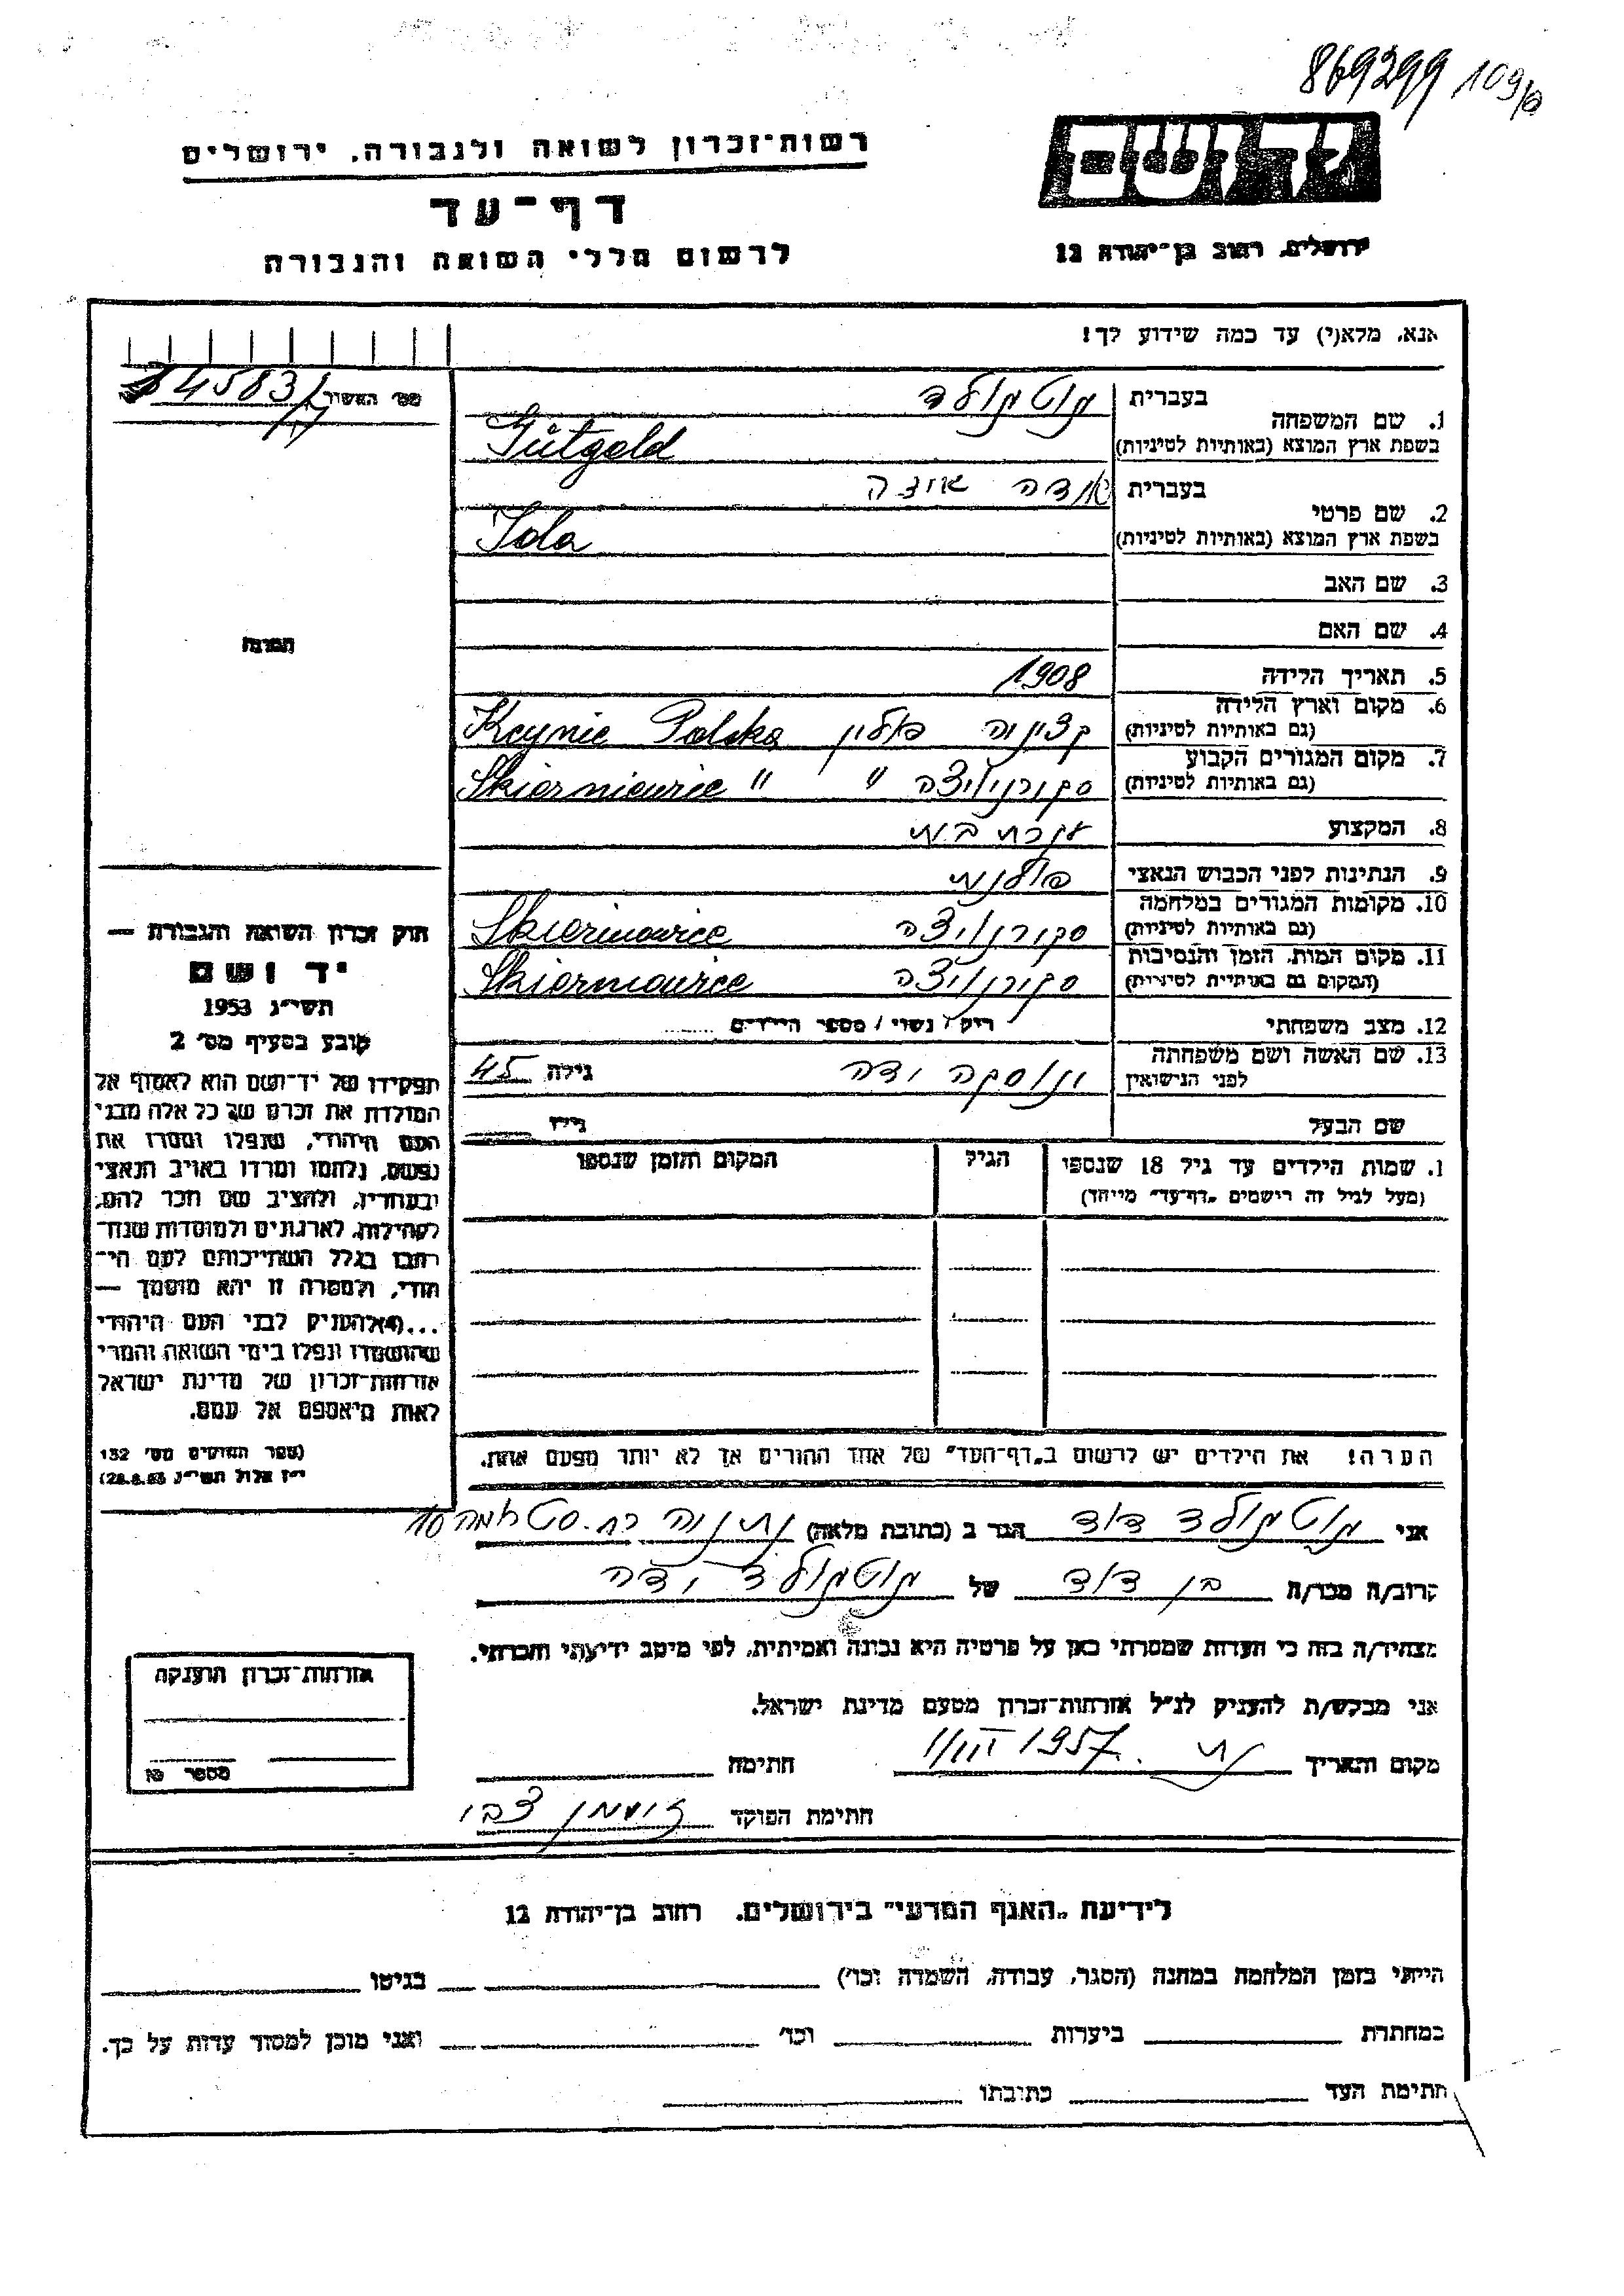 869299 109/
רשות־זכרון לשואה ולגבורה, ירושלים
יד ושם
דף־עד
לרשום חללי השואה והגבורה
ירושלים, רחוב בן־יהודה 12
אנא, מלא(י) עד כמה שידוע לך!
מס׳ האשור 4583
1. שם המשפחה
בעברית גוטגולד
בשפת ארץ המוצא (באותיות לטיניות) Gutgold
2. שם פרטי
בעברית
בשפת ארץ המוצא (באותיות לטיניות)
3. שם האב
4. שם האם
התמונה
5. תאריך הלידה 1908
6. מקום וארץ הלידה
(גם באותיות לטיניות) פולין Kcynie Polska
7. מקום המגורים הקבוע
(גם באותיות לטיניות) " Skierniewice "
8. המקצוע עקרת בית
9. הנתינות לפני הכבוש הנאצי פולנית
10. מקומות המגורים במלחמה
(גם באותיות לטיניות) Skierniewice
11. מקום המות, הזמן והנסיבות
(המקום גם באותיות לטיניות) Skierniewice
12. מצב משפחתי רווק / נשוי / מספר הילדים
13. שם האשה ושם משפחתה
לפני הנישואין גילה 45
שם הבעל גילו
1. שמות הילדים עד גיל 18 שנספו הגיל המקום והזמן שנספו
(מעל לגיל זה רישמים „דף־עד” מייחד)
הערה! את הילדים יש לרשום ב„דף־העד” של אחד ההורים אך לא יותר מפעם אחת.
חוק זכרון השואה והגבורה —
יד ושם
תשי״ג 1953
קובע בסעיף מס׳ 2
תפקידו של יד־ושם הוא לאסוף אל
המולדת את זכרם של כל אלה מבני
העם היהודי, שנפלו ומסרו את
נפשם, נלחמו ומרדו באויב הנאצי
ובעוזריו, ולהציב שם וזכר להם,
לקהילות, לארגונים ולמוסדות שנח־
רבו בגלל השתייכותם לעם הי־
הודי, ולמטרה זו יהא מוסמך —
...(4) להעניק לבני העם היהודי
שהושמדו ונפלו בימי השואה והמרי
אזרחות־זכרון של מדינת ישראל
לאות היאספם אל עמם.
(ספר החוקים מס׳ 132
י״ז אלול תשי״ג 28.8.53)
אני גוטגולד דוד הגר ב (כתובת מלאה) נתניה
קרוב/ה מכר/ה בן דוד של גוטגולד
מצהיר/ה בזה כי העדות שמסרתי כאן על פרטיה היא נכונה ואמיתית, לפי מיטב ידיעתי והכרתי.
אני מבקש/ת להעניק לנ״ל אזרחות־זכרון מטעם מדינת ישראל.
מקום ותאריך 1957 חתימה
חתימת הפוקד צבי
אזרחות־זכרון הוענקה
מספר
לידיעת „האגף המדעי” בירושלים. רחוב בן־יהודה 12
הייתי בזמן המלחמה במחנה (הסגר, עבודה, השמדה וכו׳) בגיטו
במחתרת ביערות וכו׳ ואני מוכן למסור עדות על כך.
חתימת העד כתובתו